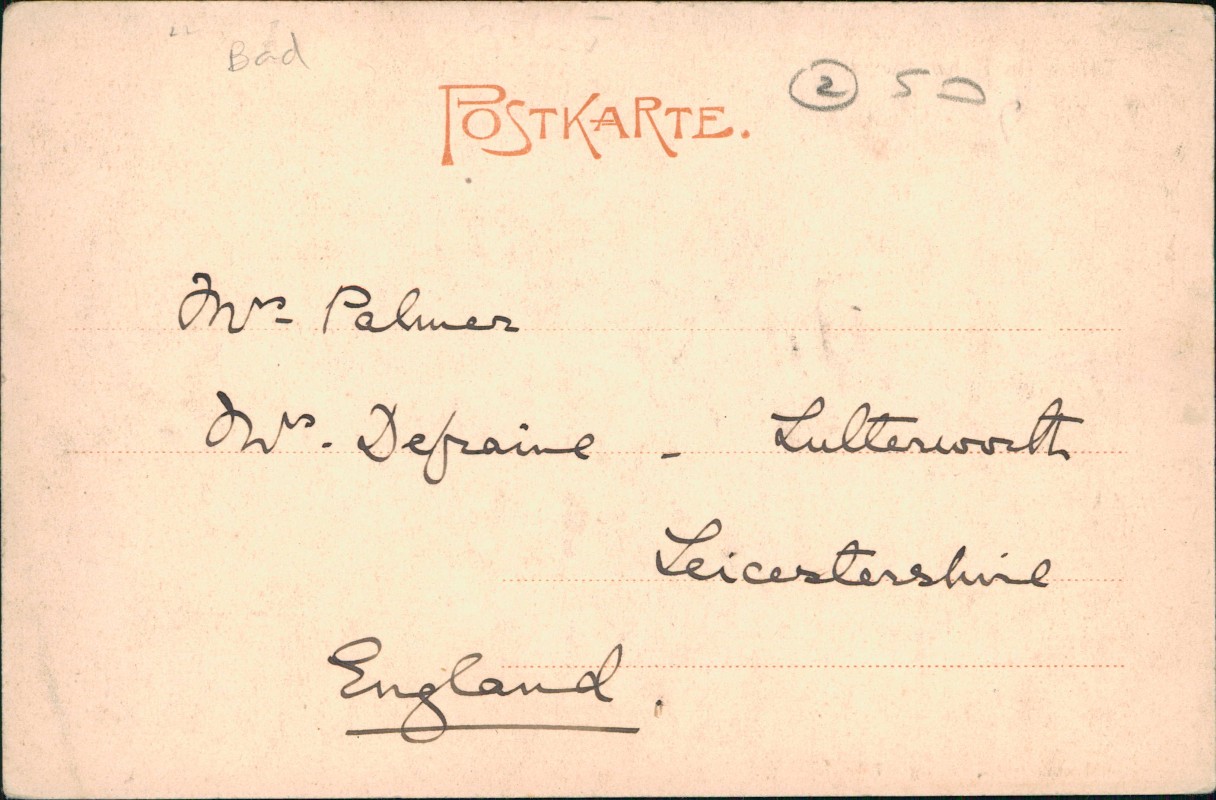 Bad
POSTKARTE.
2 50
Mrs Palmer
Mrs. Defraine - Lutterworth
Leicestershire
England.